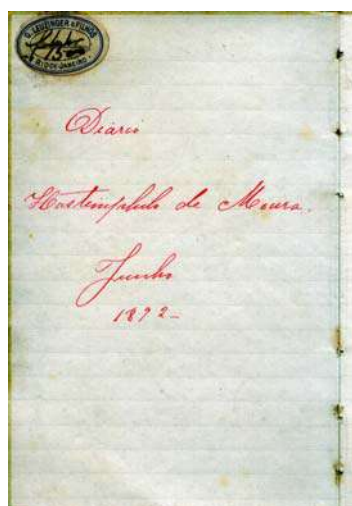 G. LEUZINGER & FILHOS
RIO DE JANEIRO
Diario
de Moura.
Junho
1892